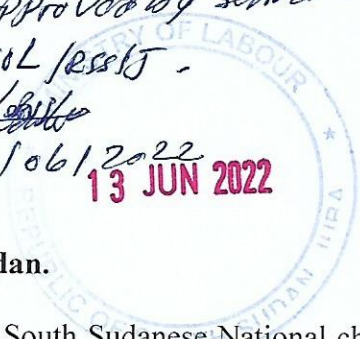 Approved by
/RSS/J -
/06/2022
13 JUN 2022
MINISTRY OF LABOUR
REPUBLIC OF SOUTH SUDAN JUBA
dan.
South Sudanese National ch